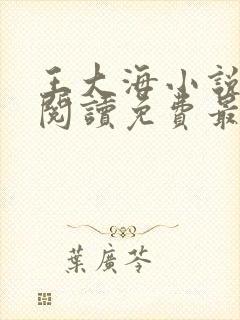 王大海小說
閱讀免費最
葉廣芩